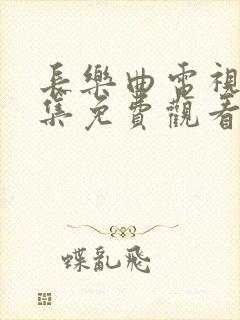 長樂曲電視
集免費觀看
蝶亂飛